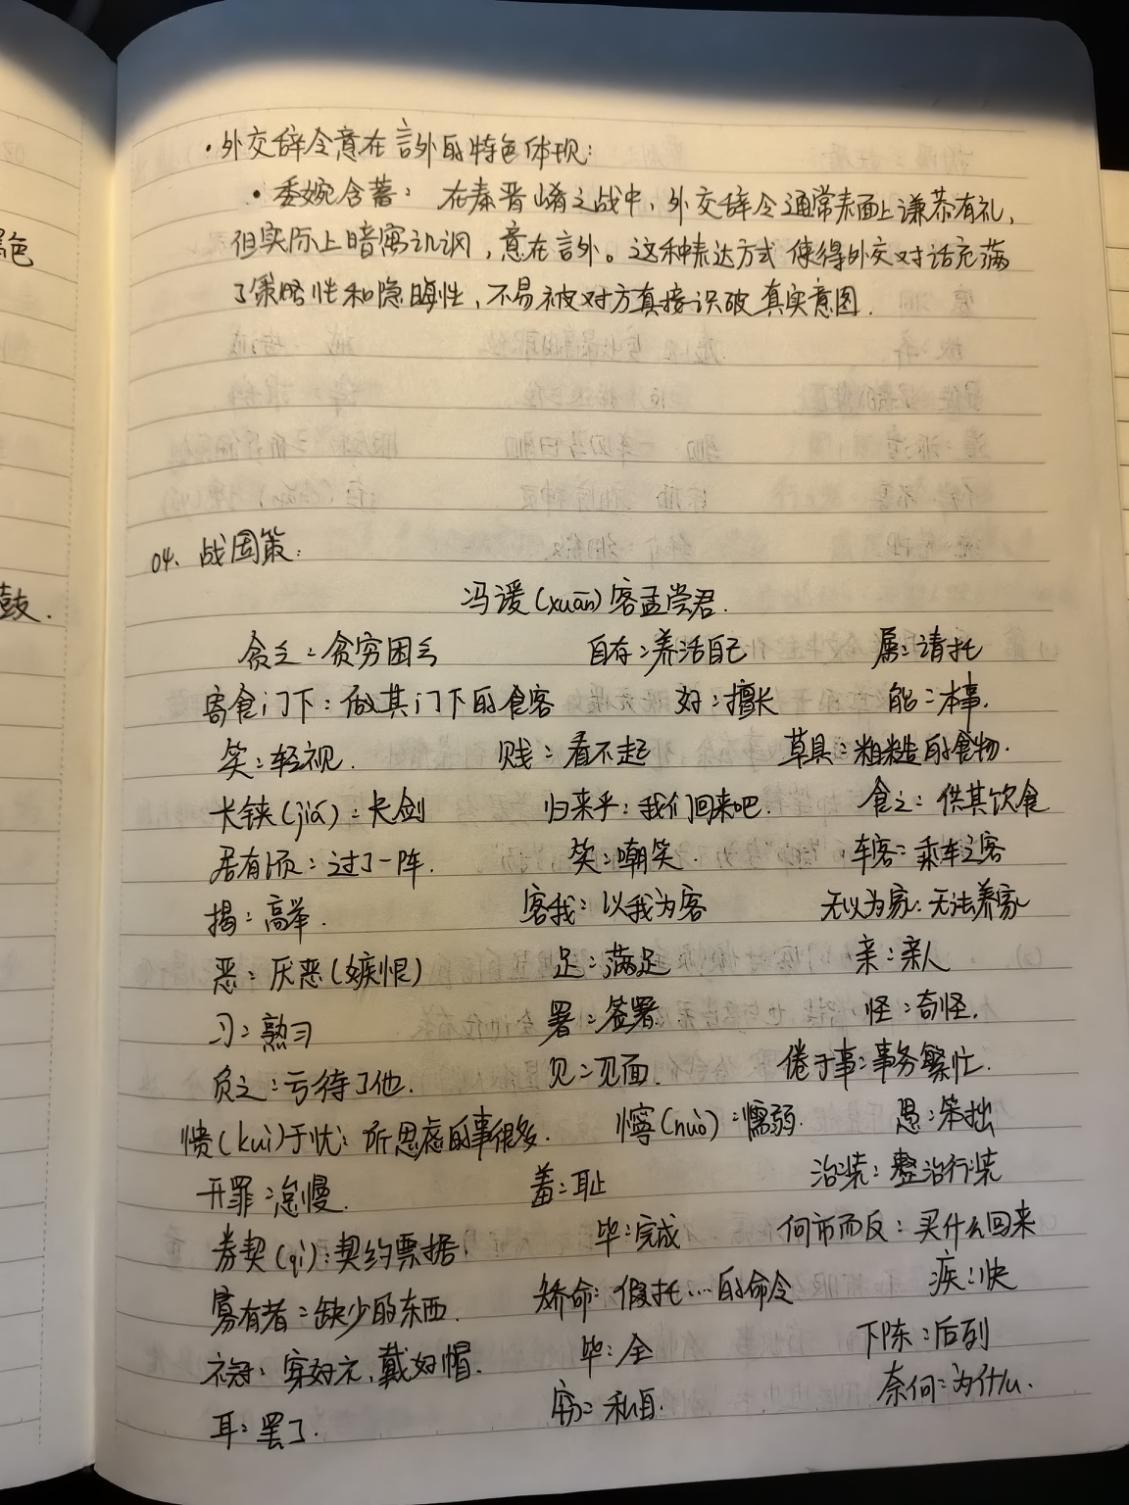 ·外交辞令意在言外的特色体现:
·委婉含蓄: 在秦晋崤之战中,外交辞令通常表面上谦恭有礼,
但实际上暗寓讥讽,意在言外。这种表达方式使得外交对话充满
了策略性和隐晦性,不易被对方直接识破真实意图.
04、战国策:
冯谖(xuān)客孟尝君.
贫乏:贫穷困乏 自存:养活自己 属:请托
寄食门下:做其门下的食客 好:擅长 能:本事.
笑:轻视. 贱:看不起 草具:粗糙的食物.
长铗(jiá):长剑 归来乎:我们回来吧. 食之:供其饮食
居有顷:过了一阵. 笑:嘲笑. 车客:乘车之客
揭:高举. 客我:以我为客 无以为家:无法养家
恶:厌恶(嫉恨) 足:满足 亲:亲人
习:熟习 署:签署. 怪:奇怪.
负之:亏待了他. 见:见面. 倦于事:事务繁忙.
愦(kuì)于忧:所思虑的事很多. 懧(nuò):懦弱. 愚:笨拙
开罪:怠慢. 羞:耻 治装:整治行装
券契(qì):契约票据. 毕:完成 何市而反:买什么回来
寡有者:缺少的东西. 矫命:假托…的命令 疾:快
衣冠:穿好衣,戴好帽. 毕:全 下陈:后列
耳:罢了. 窃:私自. 奈何:为什么.
色
鼓.